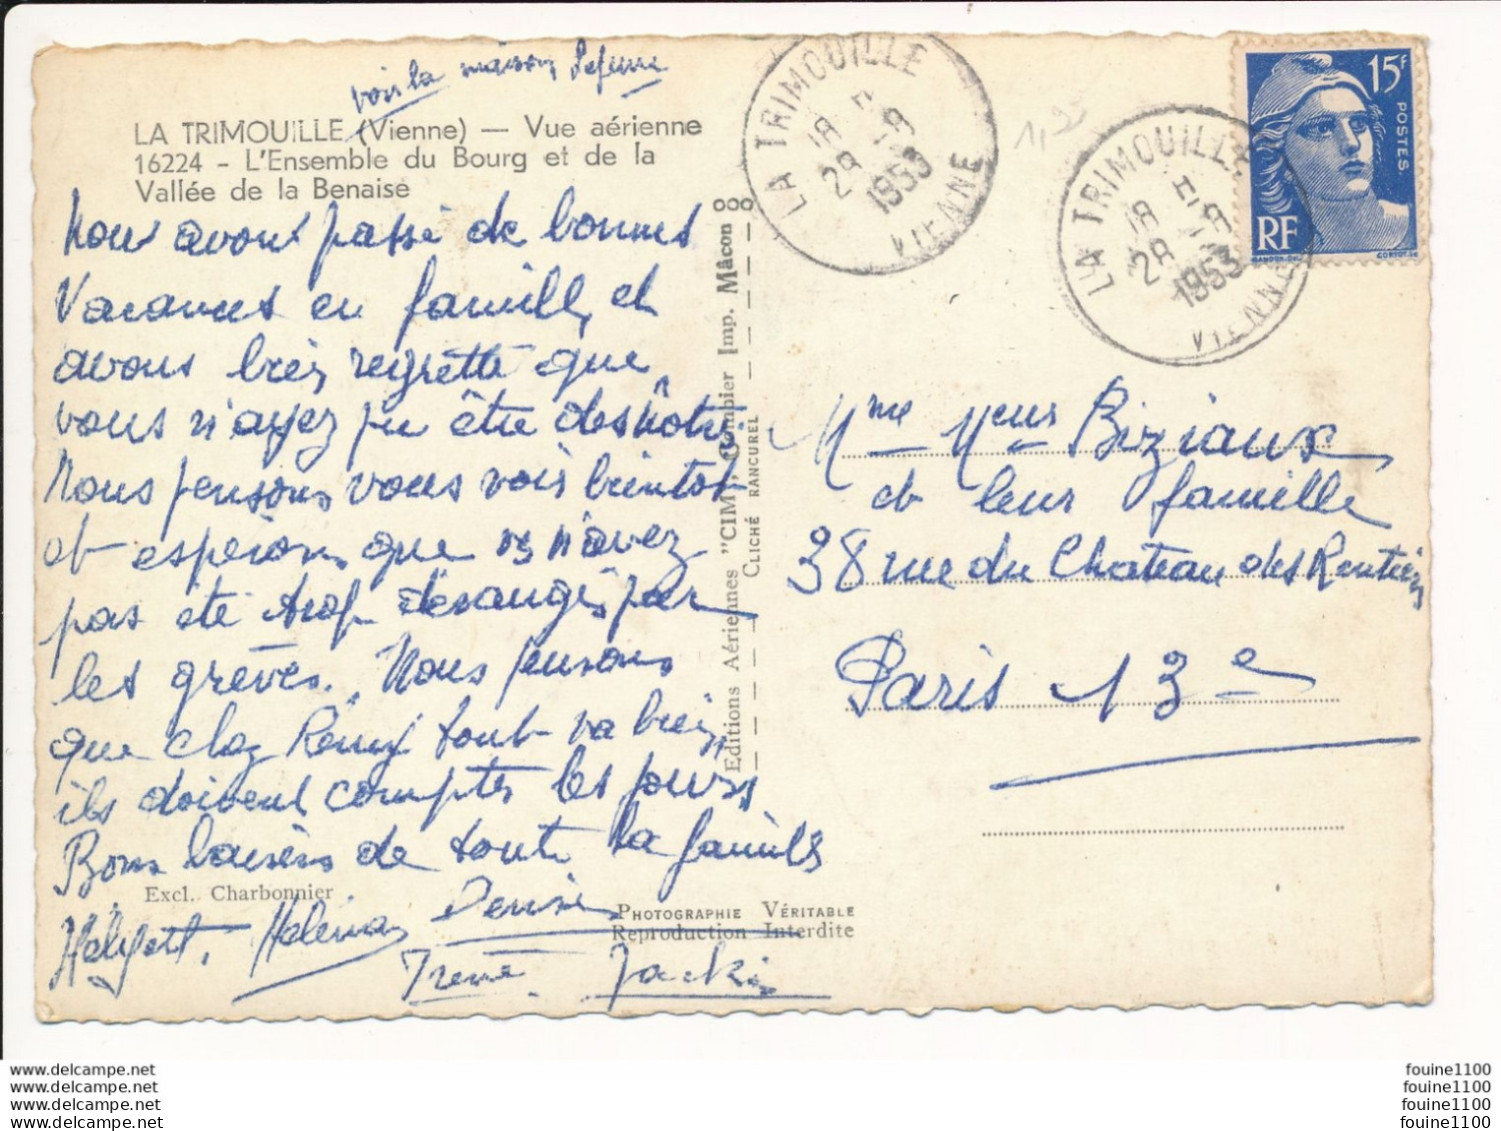 voir la maison
LA TRIMOUILLE (Vienne) — Vue aérienne
16224 - L'Ensemble du Bourg et de la
Vallée de la Benaise
Nous avons passé de bonnes
Vacances en famille, et
avons très regretté que
vous n'ayez pu être des nôtres
Nous pensons vous voir bientot
et espérons que vs n'avez
pas été trop dérangés par
les grèves. Nous pensons
que chez Rémy tout va bien,
ils doivent compter les jours,
Bons baisers de toute la famille
Excl. Charbonnier
Helina Denise
Irène Jacki
PHOTOGRAPHIE VÉRITABLE
Reproduction Interdite
Editions Aériennes "CIM", Combier Imp. Mâcon
CLICHÉ RANCUREL
LA TRIMOUILLE
18 H
28 - 8
1953
VIENNE
LA TRIMOUILLE
18 H
28 - 8
1953
VIENNE
15F
POSTES
RF
GANDON
CORTOT
Mme Meur Biziaux
et leur famille
38 rue du Chateau des Rentiers
Paris 13e
www.delcampe.net
www.delcampe.net
www.delcampe.net
www.delcampe.net
fouine1100
fouine1100
fouine1100
fouine1100